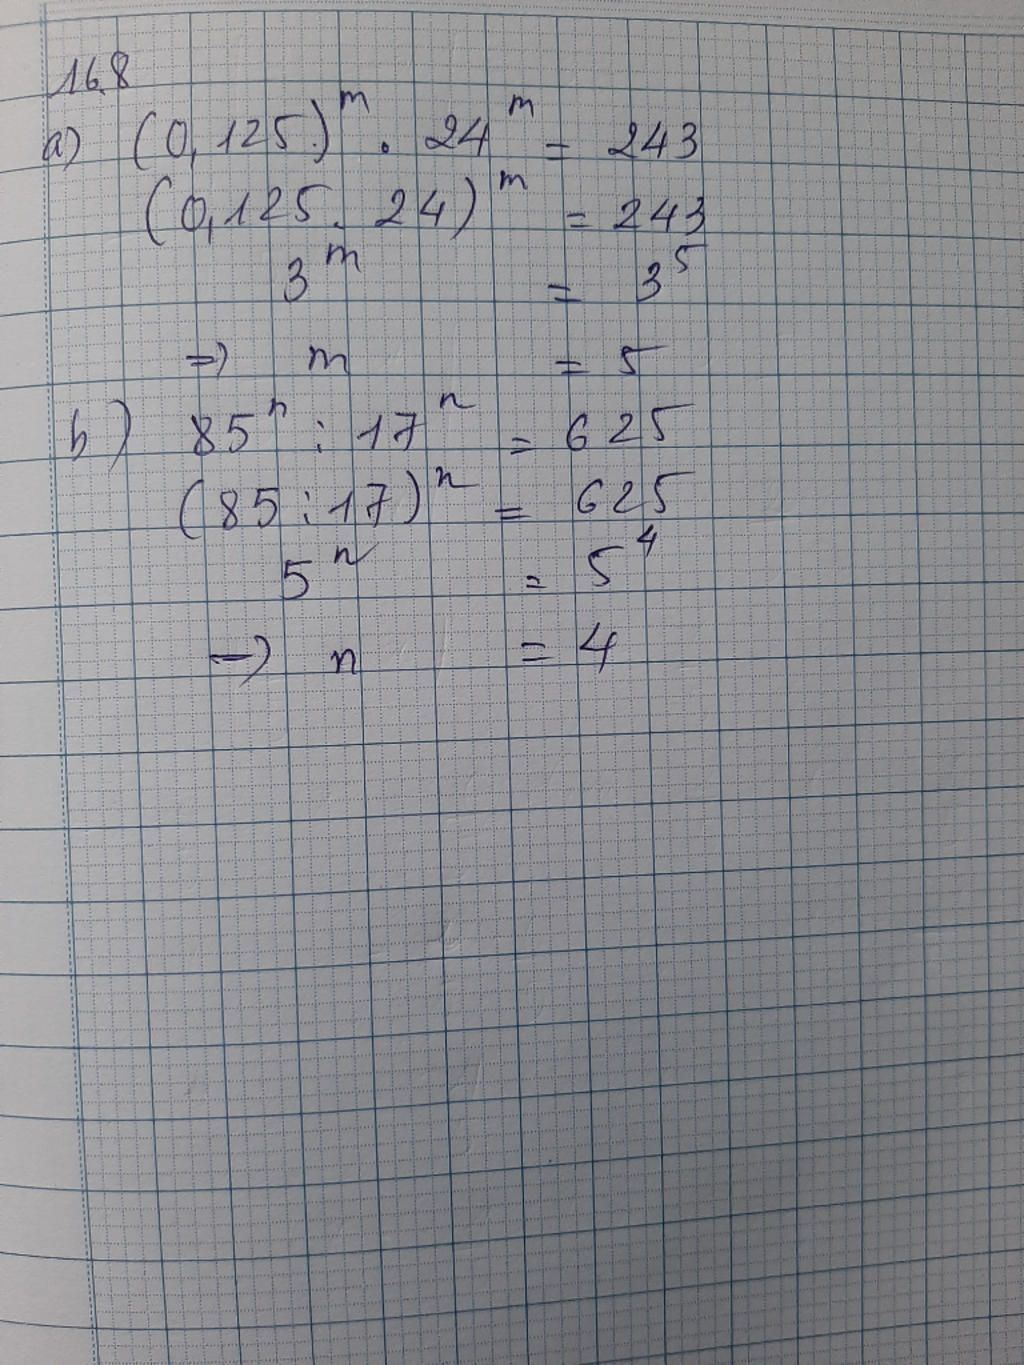 16.8
a) (0,125)^m . 24^m = 243
(0,125 . 24)^m = 243
3^m = 3^5
=> m = 5
b) 85^n : 17^n = 625
(85 : 17)^n = 625
5^n = 5^4
=> n = 4